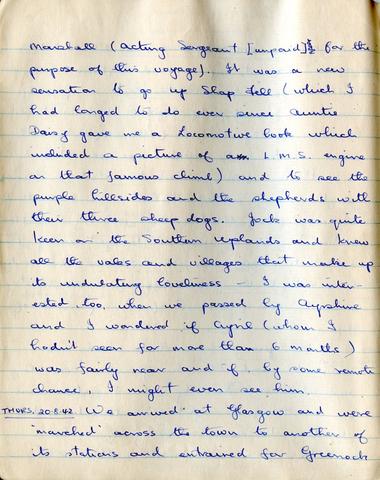 Marshall (acting Sergeant [unpaid]! for the
purpose of this voyage). It was a new
sensation to go up Shap Fell (which I
had longed to do ever since Auntie
Daisy gave me a Locomotive book which
included a picture of an L.M.S. engine
on that famous climb) and to see the
purple hillsides and the shepherds with
their three sheep dogs. Jock was quite
keen on the Southern Uplands and knew
all the vales and villages that make up
its undulating loveliness – I was inter-
ested, too, when we passed by Ayrshire
and I wondered if Cyril (whom I
hadn't seen for more than 6 months)
was fairly near and if, by some remote
chance, I might even see him.
THURS. 20.8.42 We arrived at Glasgow and were
'marched' across the town to another of
its stations and entrained for Greenock